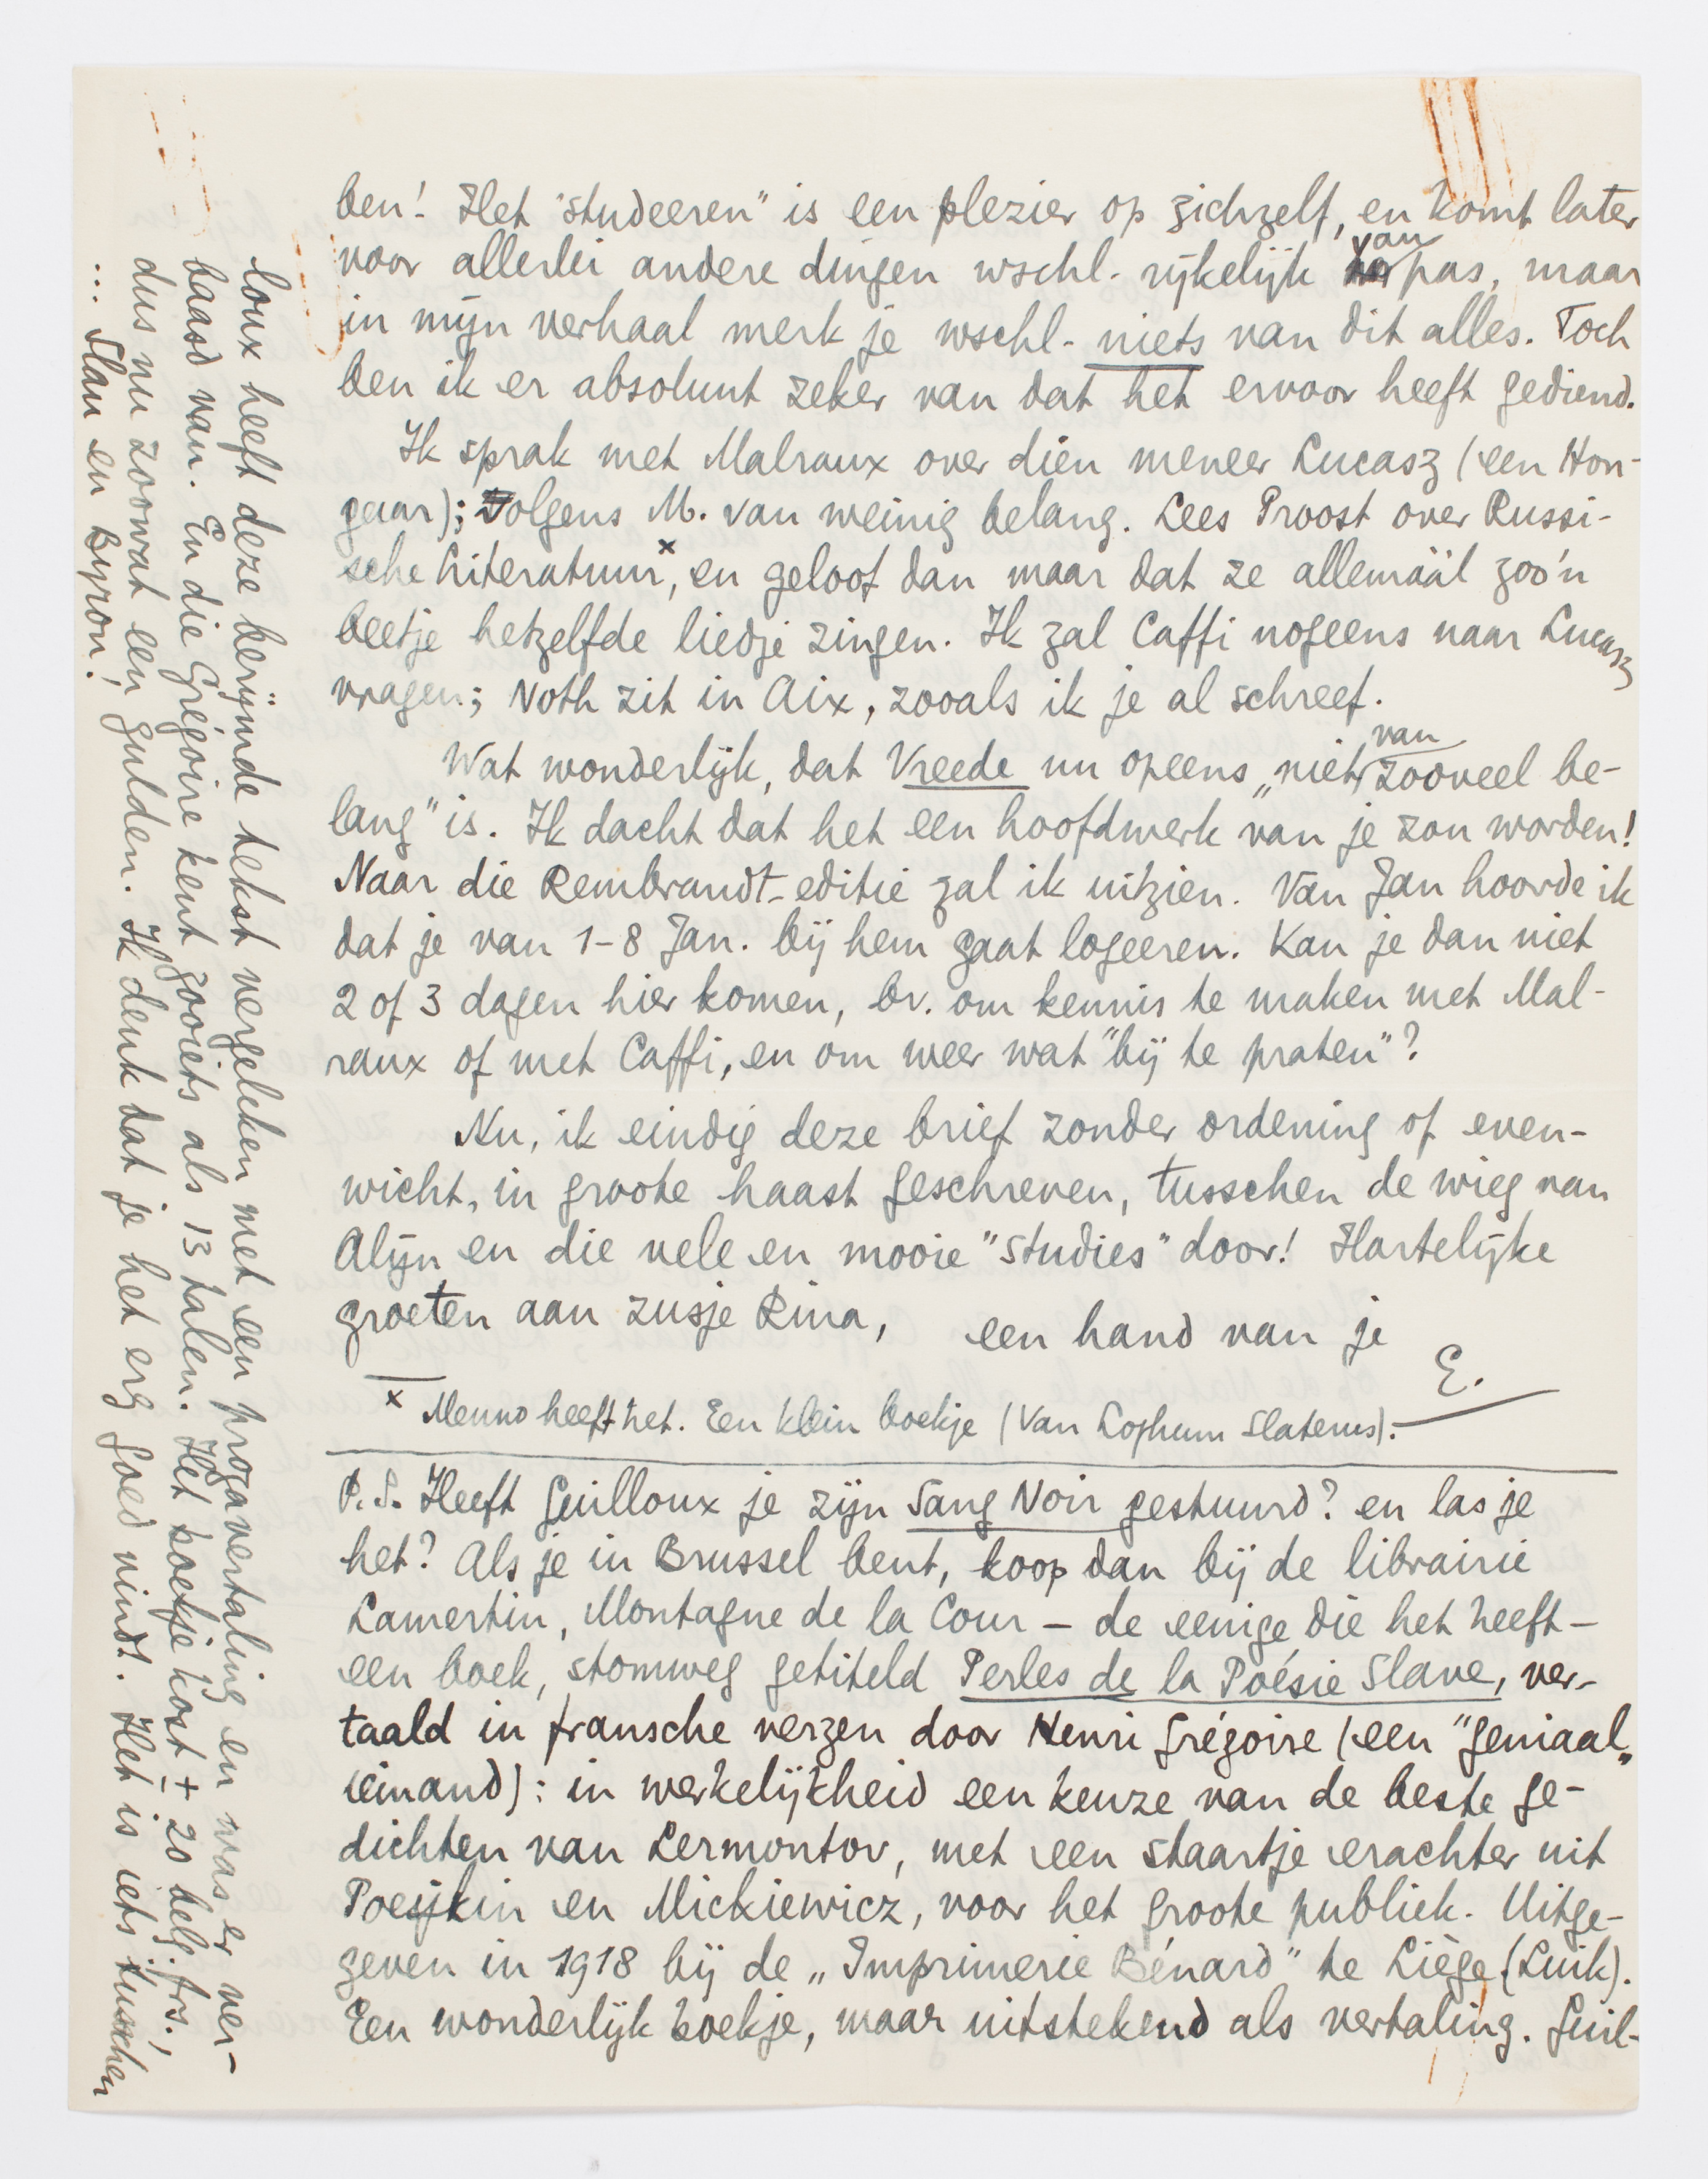 ben! Het "studeeren" is een plezier op zichzelf, en komt later
voor allerlei andere dingen wschl. rijkelijk van pas, maar
in mijn verhaal merk je wschl. niets van dit alles. Toch
ben ik er absoluut zeker van dat het ervoor heeft gediend.
Ik sprak met Malraux over dien meneer Lucasz (een Hon-
gaar); volgens M. van weinig belang. Lees Proost over Russi-
sche literatuur,ˣ en geloof dan maar dat ze allemáál zoo'n
beetje hetzelfde liedje zingen. Ik zal Caffi nogeens naar Lucasz
vragen; Noth zit in Aix, zooals ik je al schreef.
Wat wonderlijk, dat Vreede nu opeens „niet van zooveel be-
lang" is. Ik dacht dat het een hoofdwerk van je zou worden!
Naar die Rembrandt-editie zal ik uitzien. Van Jan hoorde ik
dat je van 1-8 Jan. bij hem gaat logeeren. Kan je dan niet
2 of 3 dagen hier komen, bv. om kennis te maken met Mal-
raux of met Caffi, en om weer wat "bij te praten"?
Nu, ik eindig deze brief zonder ordening of even-
wicht, in groote haast geschreven, tusschen de wieg van
Alijn en die vele en mooie "studies" door! Hartelijke
groeten aan zusje Rina,
een hand van je
E.
x Menno heeft het. Een klein boekje (Van Loghum Slaterus).
P.S. Heeft Guilloux je zijn Sang Noir gestuurd? en las je
het? Als je in Brussel bent, koop dan bij de librairie
Lamertin, Montagne de la Cour – de eenige die het heeft –
een boek, stomweg getiteld Perles de la Poésie Slave, ver-
taald in fransche verzen door Henri Grégoire (een "geniaal"
iemand): in werkelijkheid een keuze van de beste ge-
dichten van Lermontov, met een staartje erachter uit
Poesjkin en Mickiewicz, voor het groote publiek. Uitge-
geven in 1918 bij de „Imprimerie Bénard" te Liège (Luik).
Een wonderlijk boekje, maar uitstekend als vertaling. Guil-
loux heeft deze berijmde tekst vergeleken met een prozavertaling en was er ver-
baasd van. En die Grégoire kent zooiets als 13 talen. Het boekje kost ± 20 belg. frs.,
dus nu zoowat een gulden. Ik denk dat je het erg goed vindt. Het is iets tusschen
... Slau en Byron!